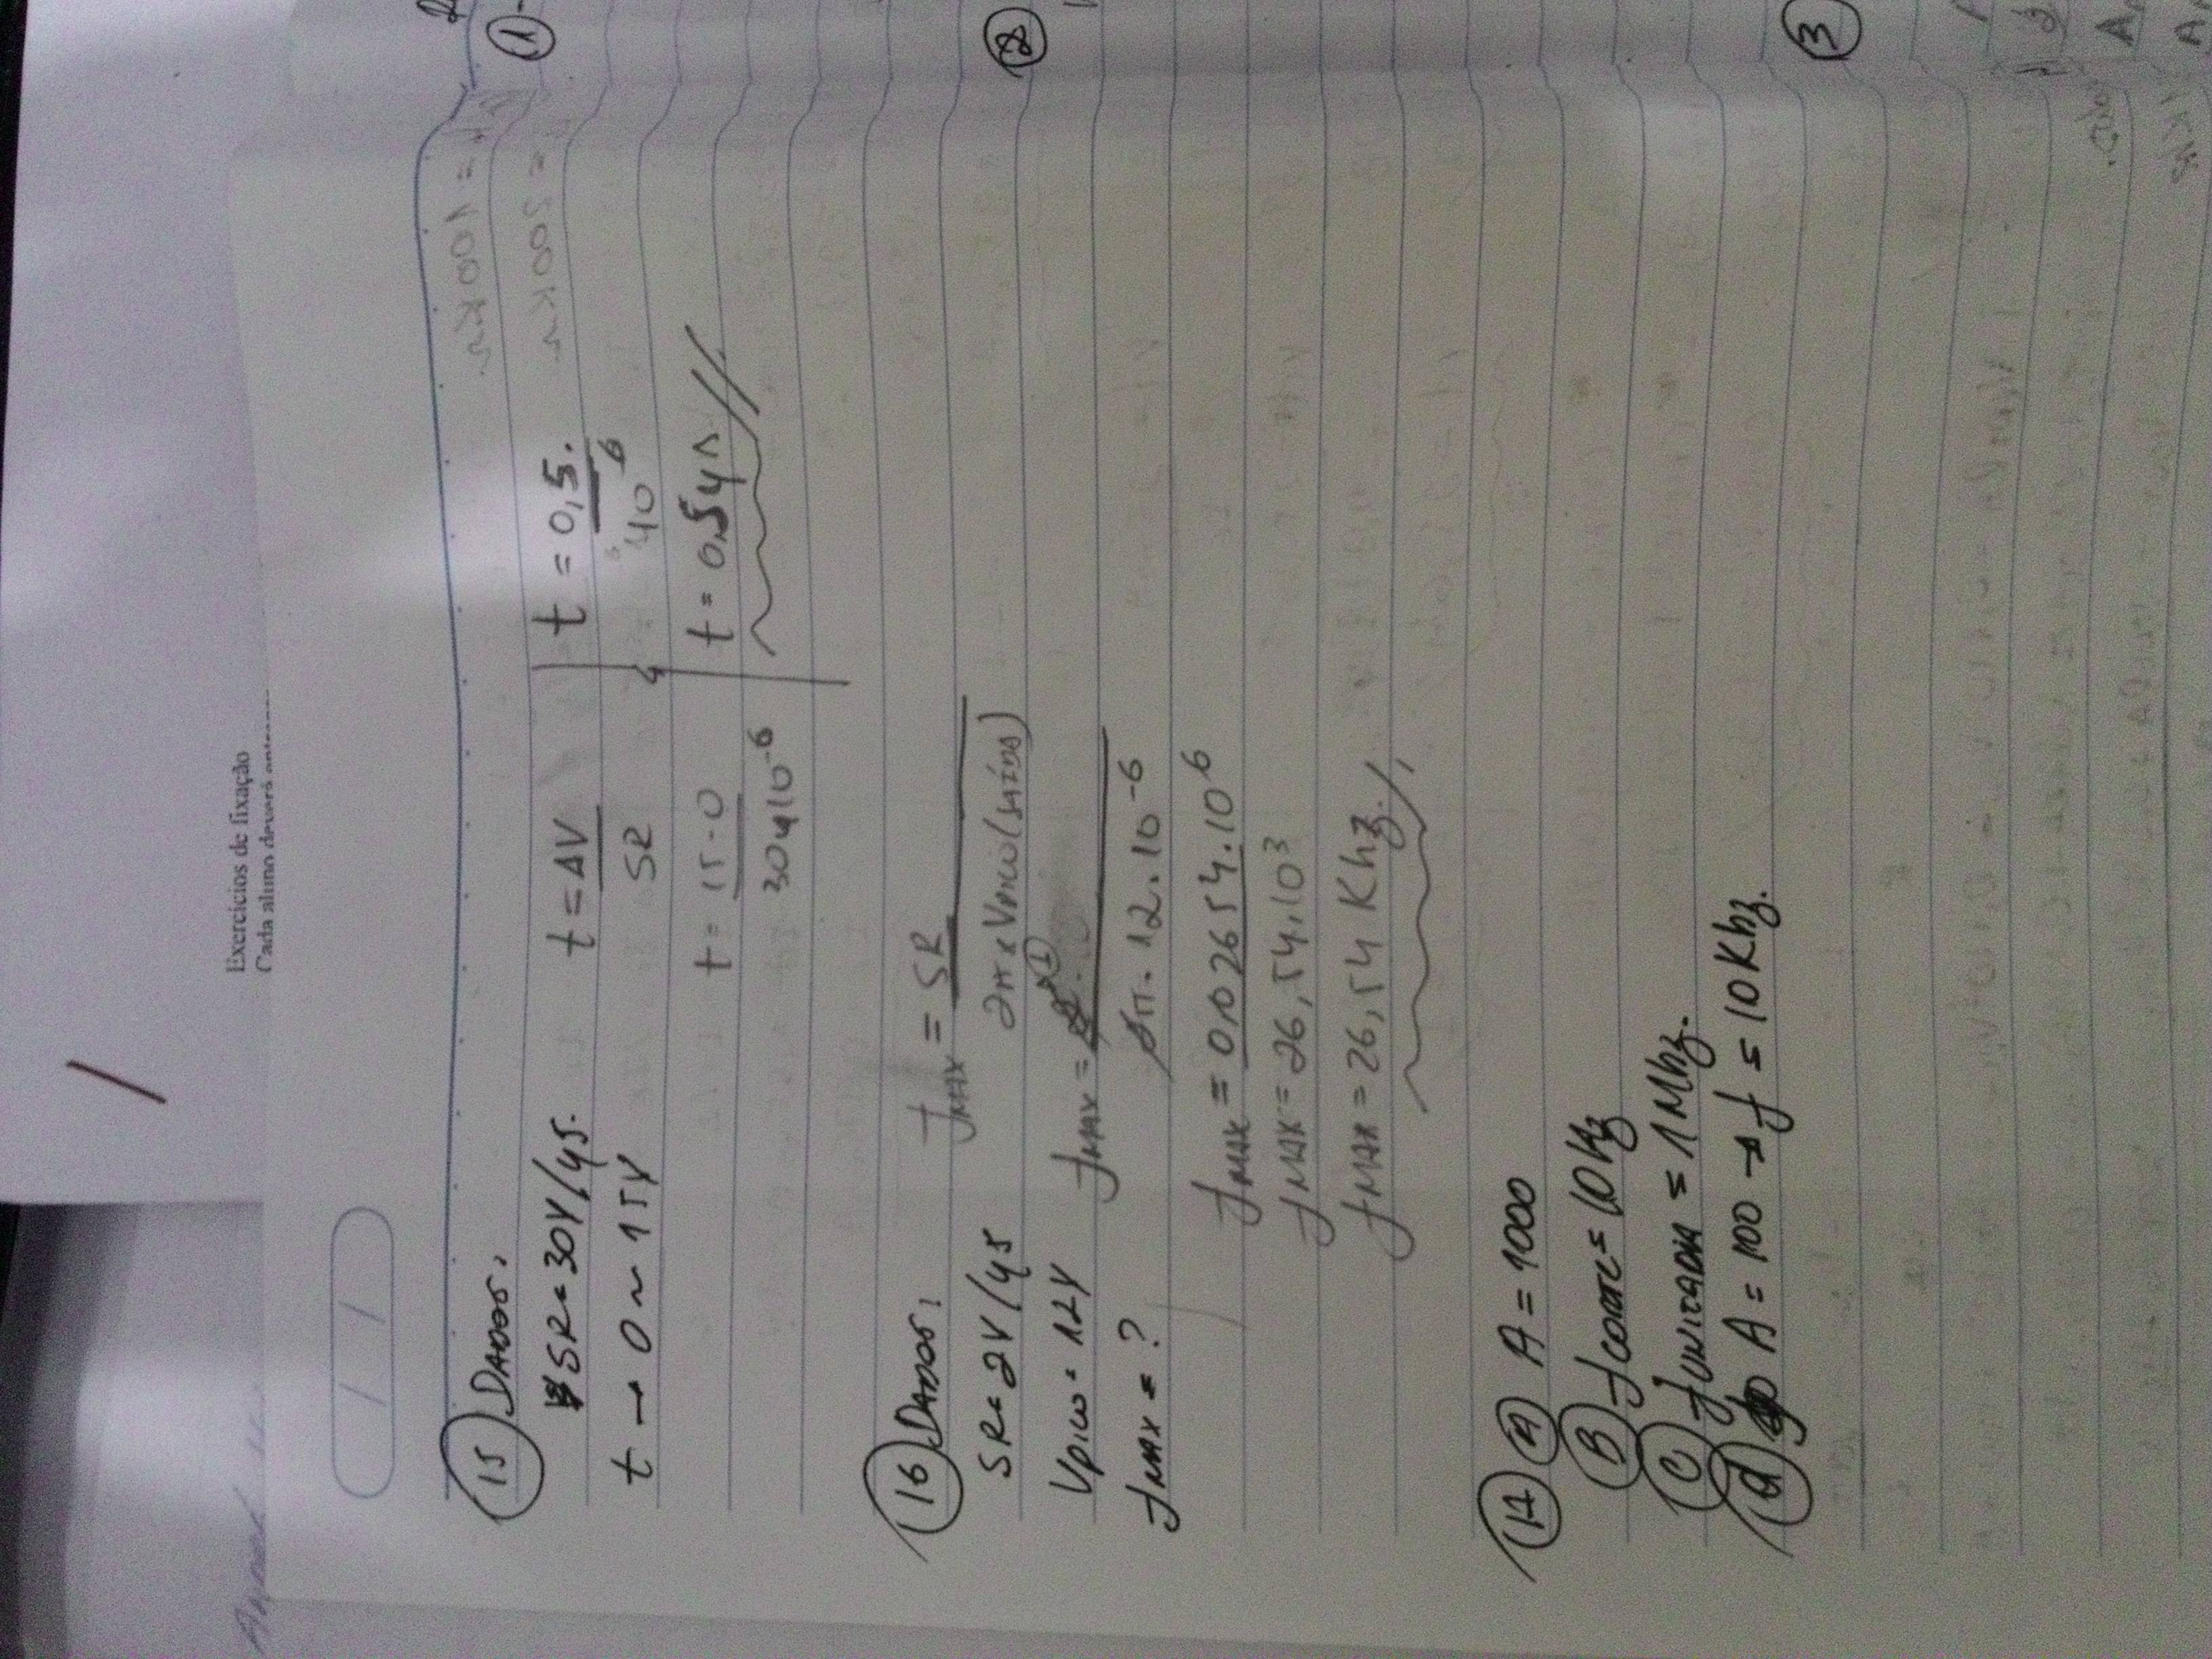 Exercícios de fixação
Cada aluno deverá
15 Dados:
SR = 30V/μs.
t → 0 ~ 15V
t = ΔV
SR
t = 15-0
30μ10-6
t = 0,5.
10-6
t = 0,5μs
16 Dados:
SR = 2V/μs
Vpico = 12V
fmax = ?
fmax = SR
2π x Vpico (saída)
fmax =
2π. 12. 10-6
fmax = 0,02654. 106
fmax = 26,54. 103
fmax = 26,54 Khz.
17 A A = 1000
B fcorte = 10Hz
C funitária = 1Mhz.
d A = 100 → f = 10Khz.
1
2
3